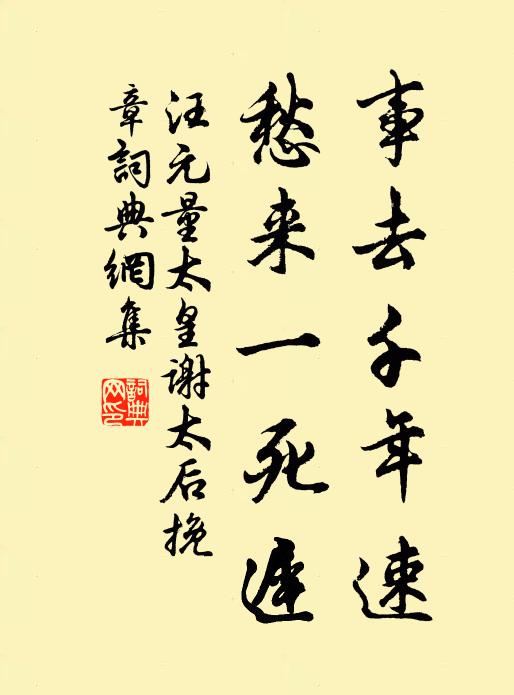 事去千年速
愁来一死遲
汪元量太皇謝太后挽
章詞典網集
詞典
网印